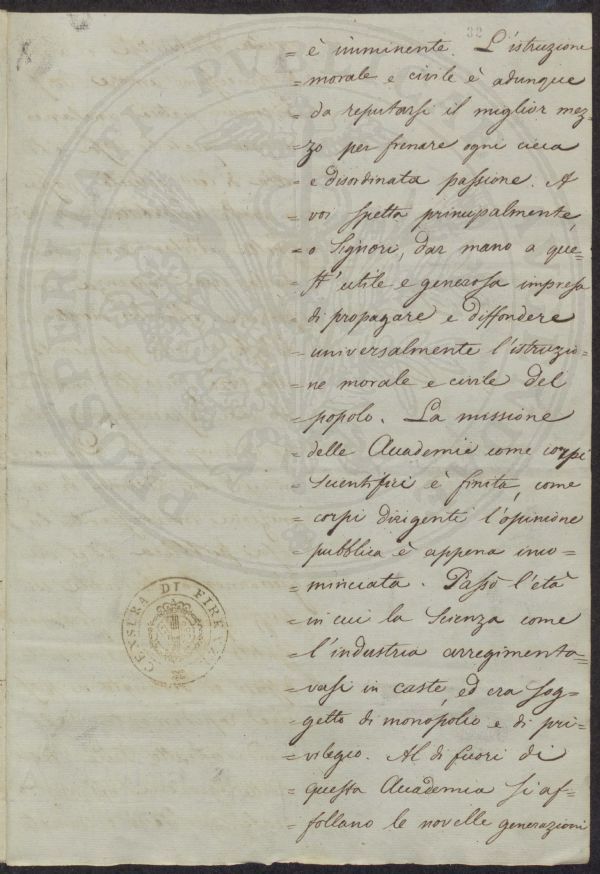 32
= è imminente. L'istruzione
= morale e civile è adunque
= da reputarsi il miglior mez=
= zo per frenare ogni cieca
= e disordinata passione. A
= voi spetta principalmente,
= o Signori, dar mano a que=
= st'utile e generosa impresa
= di propagare e diffondere
= universalmente l'istruzio=
= ne morale e civile del
= popolo. La missione
= delle Accademie come corpi
= scientifici è finita, come
= corpi dirigenti l'opinione
= pubblica è appena inco=
= minciata. Passò l'età
= in cui la Scienza come
= l'industria arregimenta=
= vasi in caste, ed era sog=
= getto di monopolio e di pri=
= vilegio. Al di fuori di
= questa Accademia si af=
= follano le novelle generazioni
CENSURA DI FIRENZE